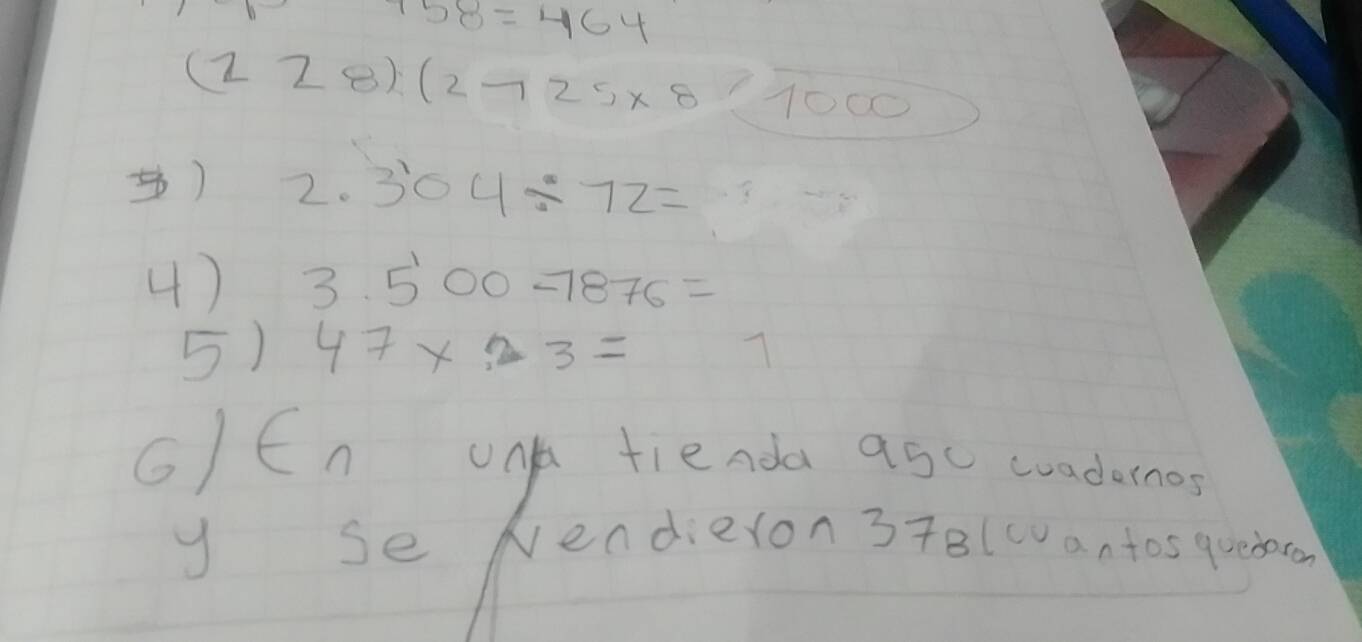 458=464
(128):(2-125x8 1000
3) 2.304÷12=
4) 3.500-1876=
5) 47x23= 1
6) En una tienda 950 cuadernos
y se vendieron 378 (cuantos quedaron